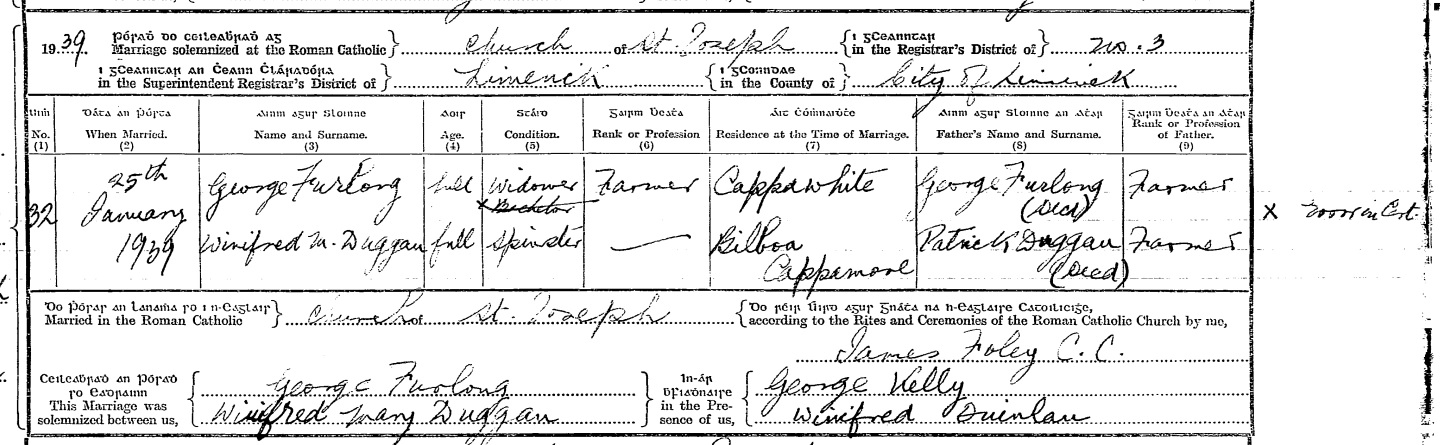 1939. Pósaḋ do ceileaḃraḋ ag
Marriage solemnized at the Roman Catholic } church of St. Joseph { i gCeanntar
in the Registrar's District of } no. 3
i gCeanntar an Ċeann Ċláraḋóra
in the Superintendent Registrar's District of } Limerick { i gConndae
in the County of } City of Limerick
Uiṁ Dáta an Pósta Ainm agus Sloinne Aois Stáid Gairm Ḃeaṫa Áit Ċóṁnuiḋṫe Ainm agus Sloinne an Aṫar Gairm Ḃeaṫa an Aṫar
No. When Married. Name and Surname. Age. Condition. Rank or Profession Residence at the Time of Marriage. Father's Name and Surname. Rank or Profession of Father.
(1) (2) (3) (4) (5) (6) (7) (8) (9)
32 25th January 1939
George Furlong full Widower Farmer Cappawhite George Furlong (Decd) Farmer
x Bachelor
Winifred M. Duggan full Spinster — Bilboa Cappamore Patrick Duggan (Decd) Farmer
x Error in Cert.
Do Pósaḋ an lánaṁa so i n-Eaglais
Married in the Roman Catholic } church of St. Joseph { Do réir
according to the Rites and Ceremonies of the Roman Catholic Church by me,
James Foley C. C.
Ceileaḃraḋ an Pósaḋ
so eadrainn
This Marriage was
solemnized between us, { George Furlong
Winifred Mary Duggan
In-ár
ḃfiaḋnaise
in the Pre-
sence of us, { George Kelly
Winifred Quinlan